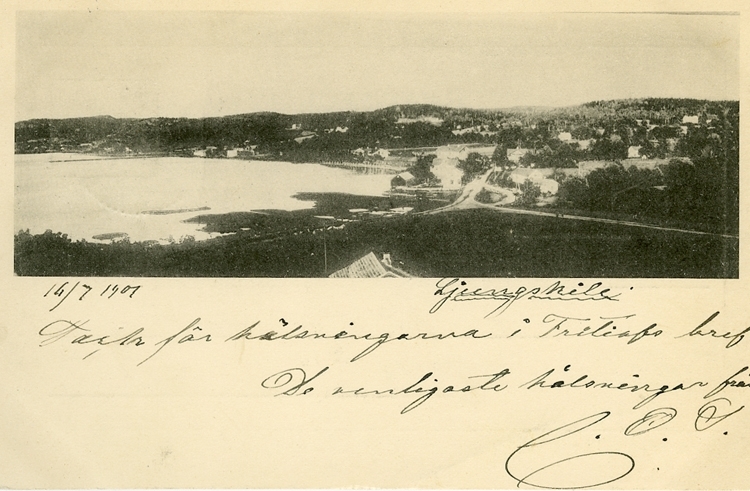 16/7 1901
Ljungskile
Tack för hälsningarna i Fritiofs bref
De venligaste hälsningar frå
C. O. S.